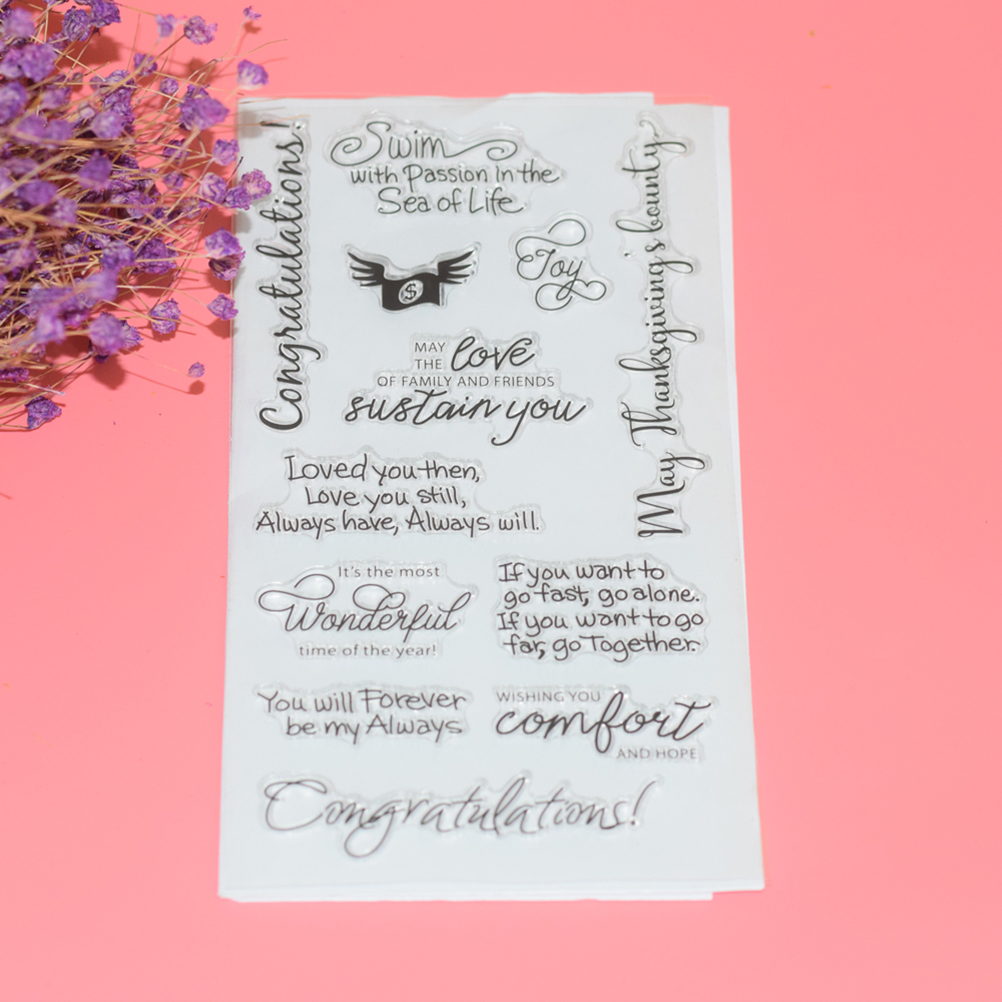 Congratulations!
Swim
with Passion in the
Sea of Life
$
Joy
May Thanksgiving's bounty
MAY
THE love
OF FAMILY AND FRIENDS
sustain you
Loved you then,
Love you still,
Always have, Always will.
It's the most
Wonderful
time of the year!
If you want to
go fast, go alone.
If you want to go
far, go Together.
You will Forever
be my Always
WISHING YOU
comfort
AND HOPE
Congratulations!